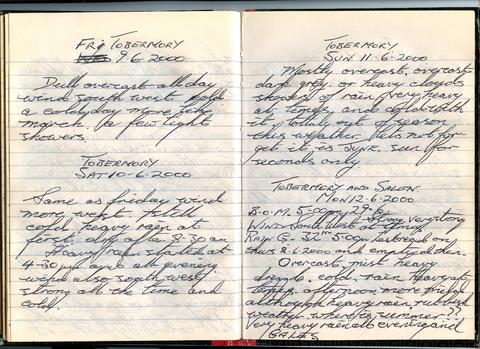 FRI TOBERMORY
9-6-2000
Dull overcast all day
wind south west
a cold day more like
march. a few light
showers.
TOBERMORY
SAT 10-6-2000
Same as friday wind
more west & still
cold, heavy rain at
first, dry after 8-30 am
Heavy rain started at
4-30 pm and all evening
wind also south west
strong all the time and
cold.
TOBERMORY
SUN 11-6-2000
Mostly overcast, overcast
dark grey or heavy clouds
showers of rain very heavy
at times and cold with
it, totally out of season
this weather. lets not for-
get it is June. sun for
seconds only
TOBERMORY AND SALEN.
MON 12-6-2000
B-O-M. 5-00pm 29-
Strong very strong
WIND South West at times
RAIN G- 32 5-00pm last read on
thurs 8-6 2000 and empty then.
Overcast, mist heavy
drizzle cold, rain Heavy at
times, afternoon more
although heavy rain, rubbish
weather where is summer??
Very heavy rain all evening and
GALES